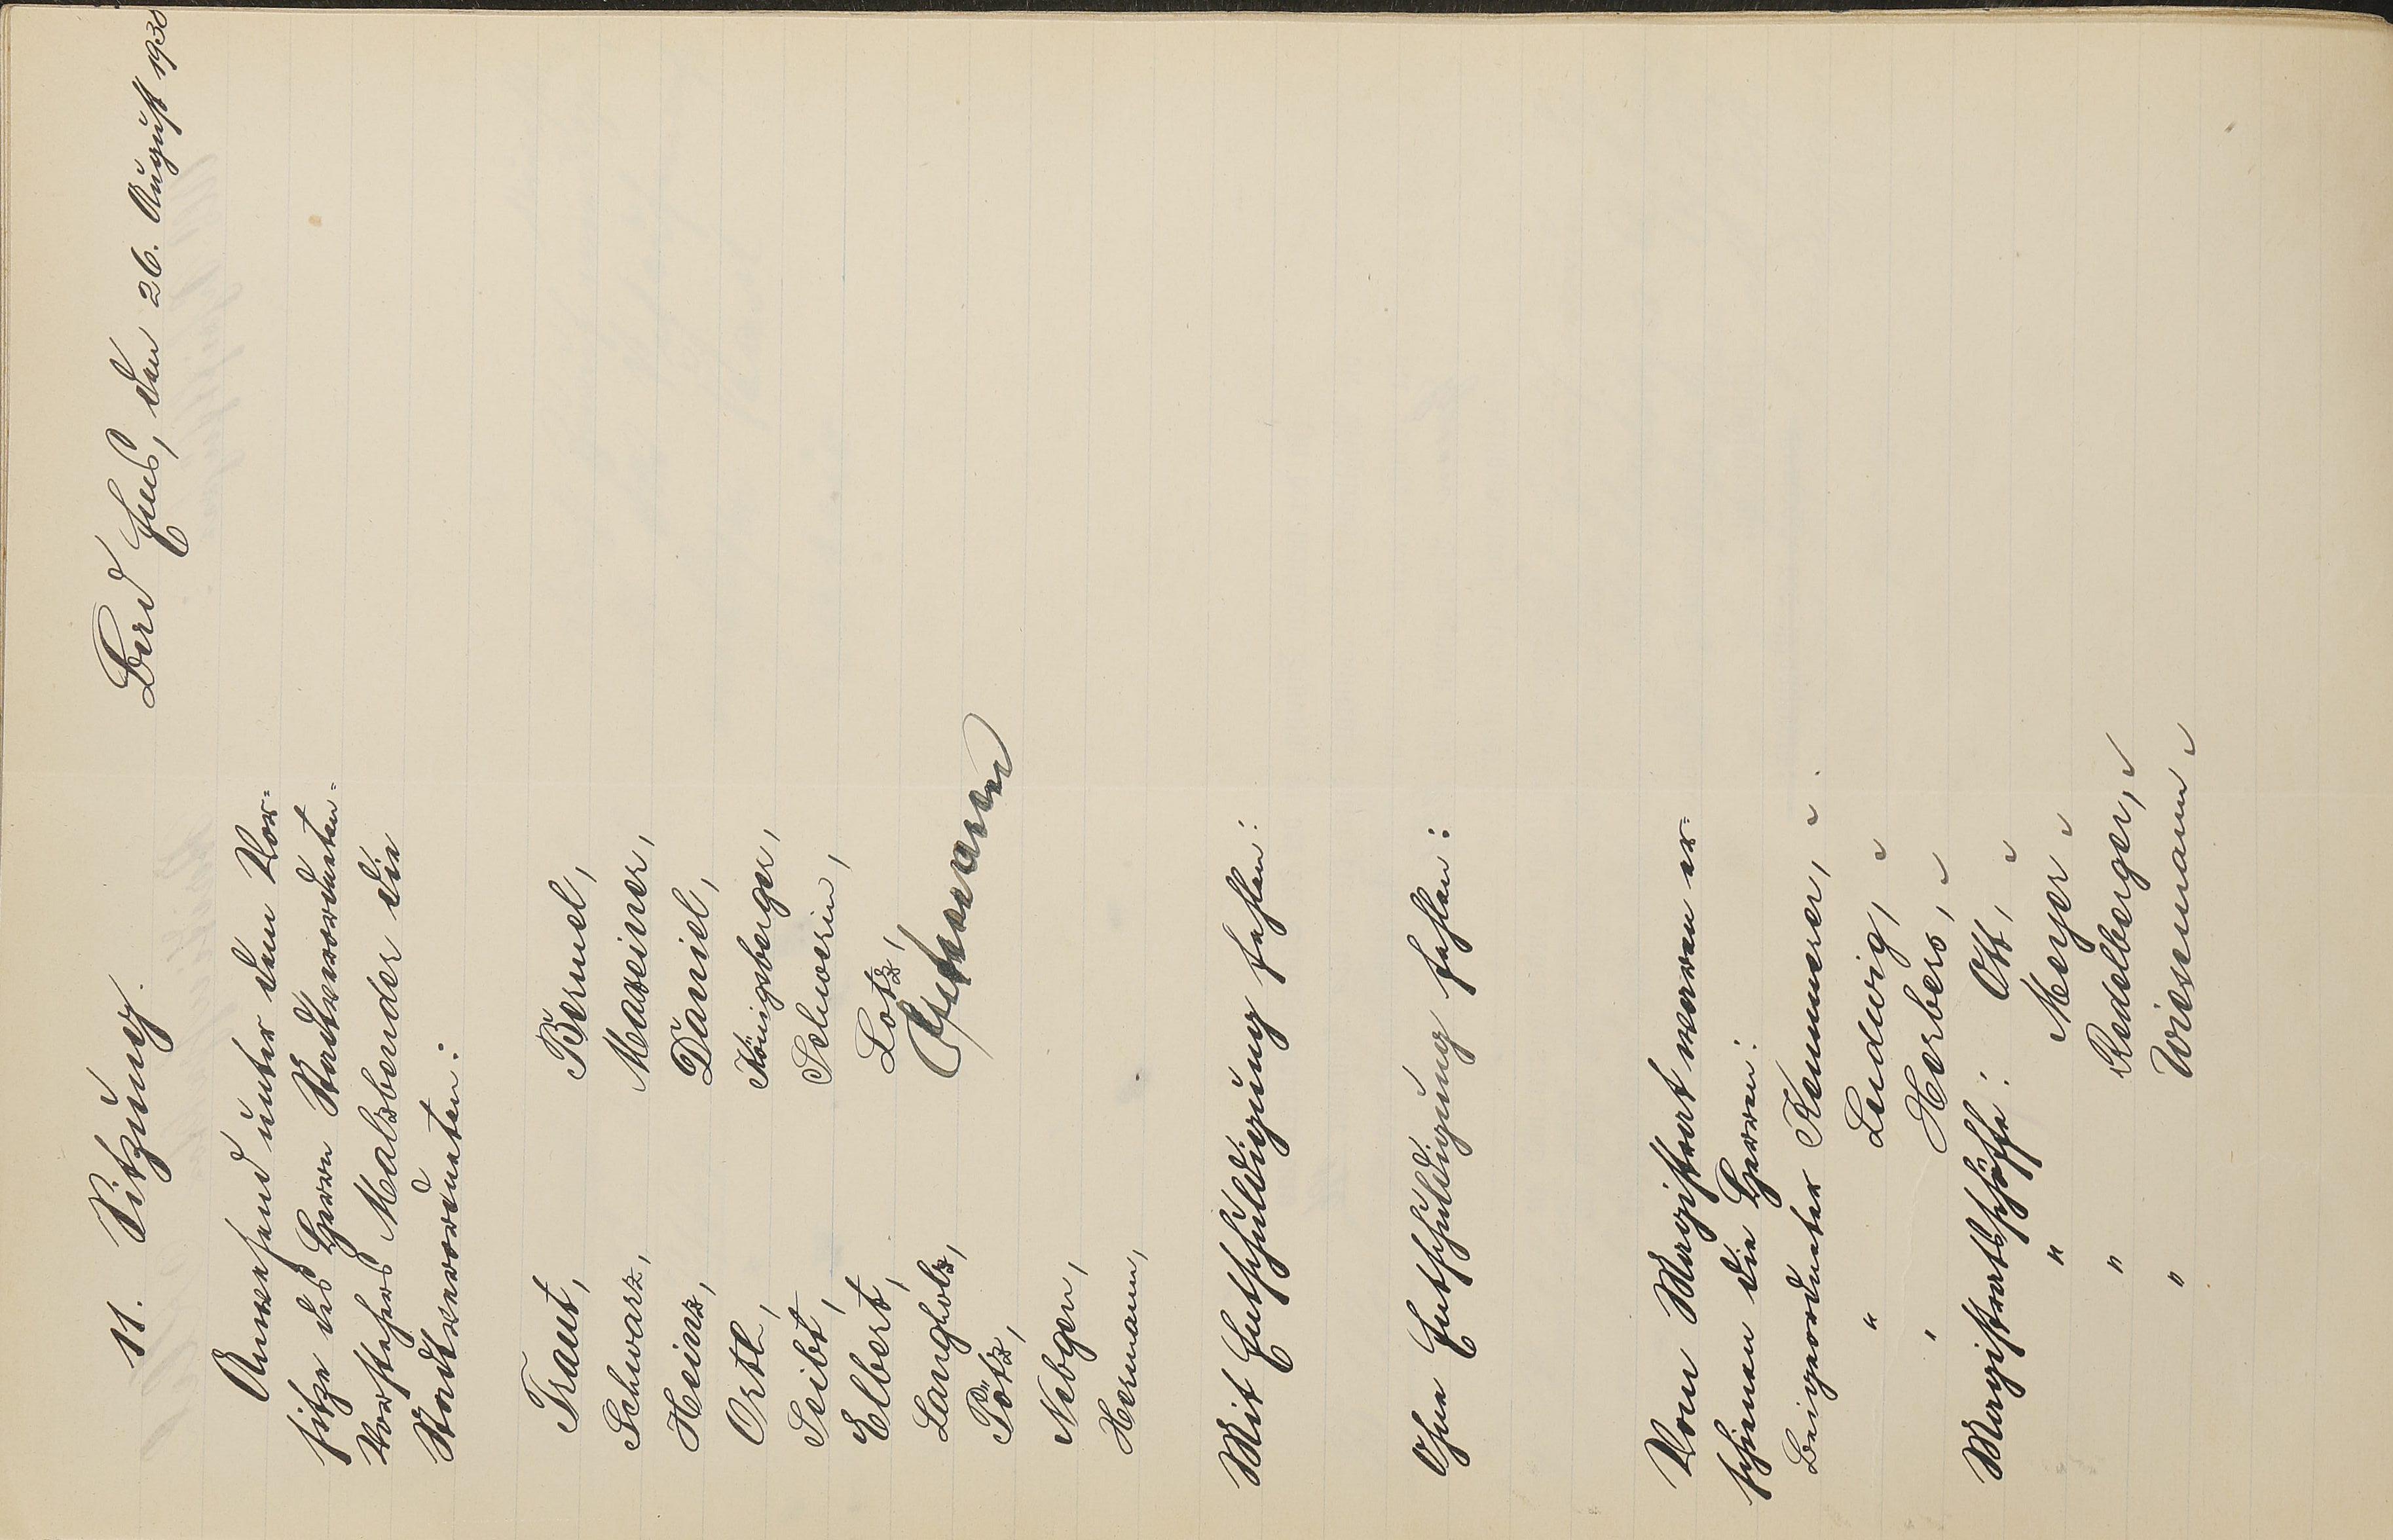 11. Sitzung. Bad Ems, den 26. August 1930
Anwesend unter dem Vor-
sitze des Herrn Stadtverordneten-
Vorstehers Malzbender die
Stadtverordneten:
Traut, Bermel,
Schwarz, Maxeiner,
Heinz, Daniel,
Orth, Königsberger,
Seibt, Schwerin,
Elbert, Lotz,
Langholz,
Pötz,
Nebgen,
Hermann,
Mit Entschuldigung fehlen:
Ohne Entschuldigung fehlen:
Vom Magistrat waren er-
schienen die Herren:
Beigeordneter Kemmerer,
" Ludwig,
" Herbers,
Magistratsschöffe: Ott,
" Meyer
" Redelberger,
" Wiesemann